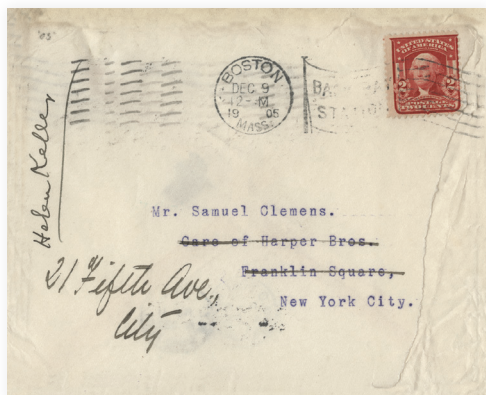 '05
BOSTON
DEC 9
12-M
1905
MASS.
BACK BAY
STATION
UNITED STATES
OF AMERICA
2 2
POSTAGE
TWO CENTS
Helen Keller
Mr. Samuel Clemens.
Care of Harper Bros.
Franklin Square,
New York City.
21 Fifth Ave.,
City